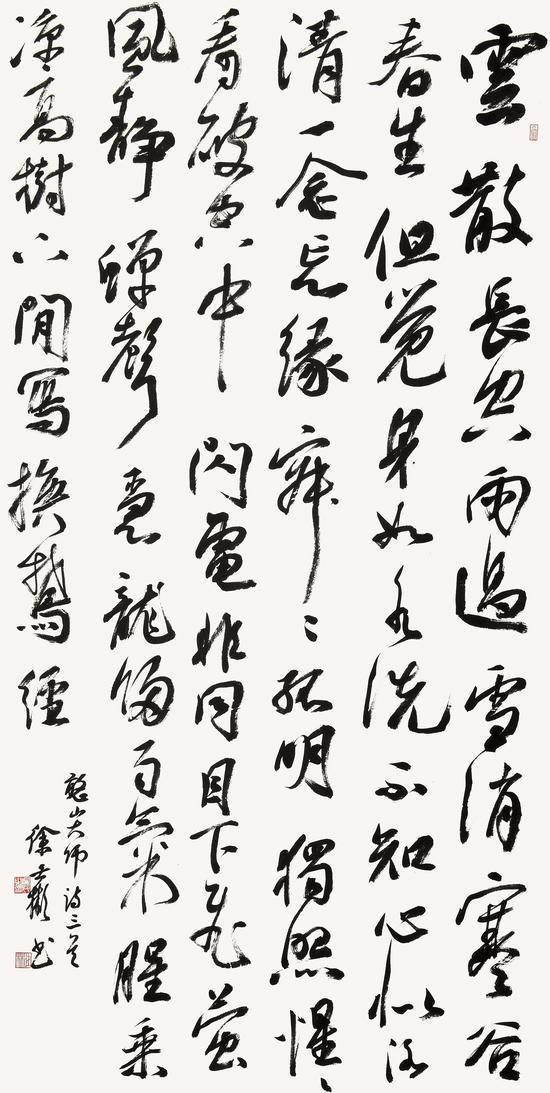 雲散長空雨過雪消寒谷
春生但覺身如水洗不知心似冰
清一念忘緣寂寂孤明獨照惺惺
看破空中閃電非同目下飛螢
風靜蟬聲急龍歸氣腥乘
涼高樹下閒寫換鵝經
憨山大師詩三首
徐書